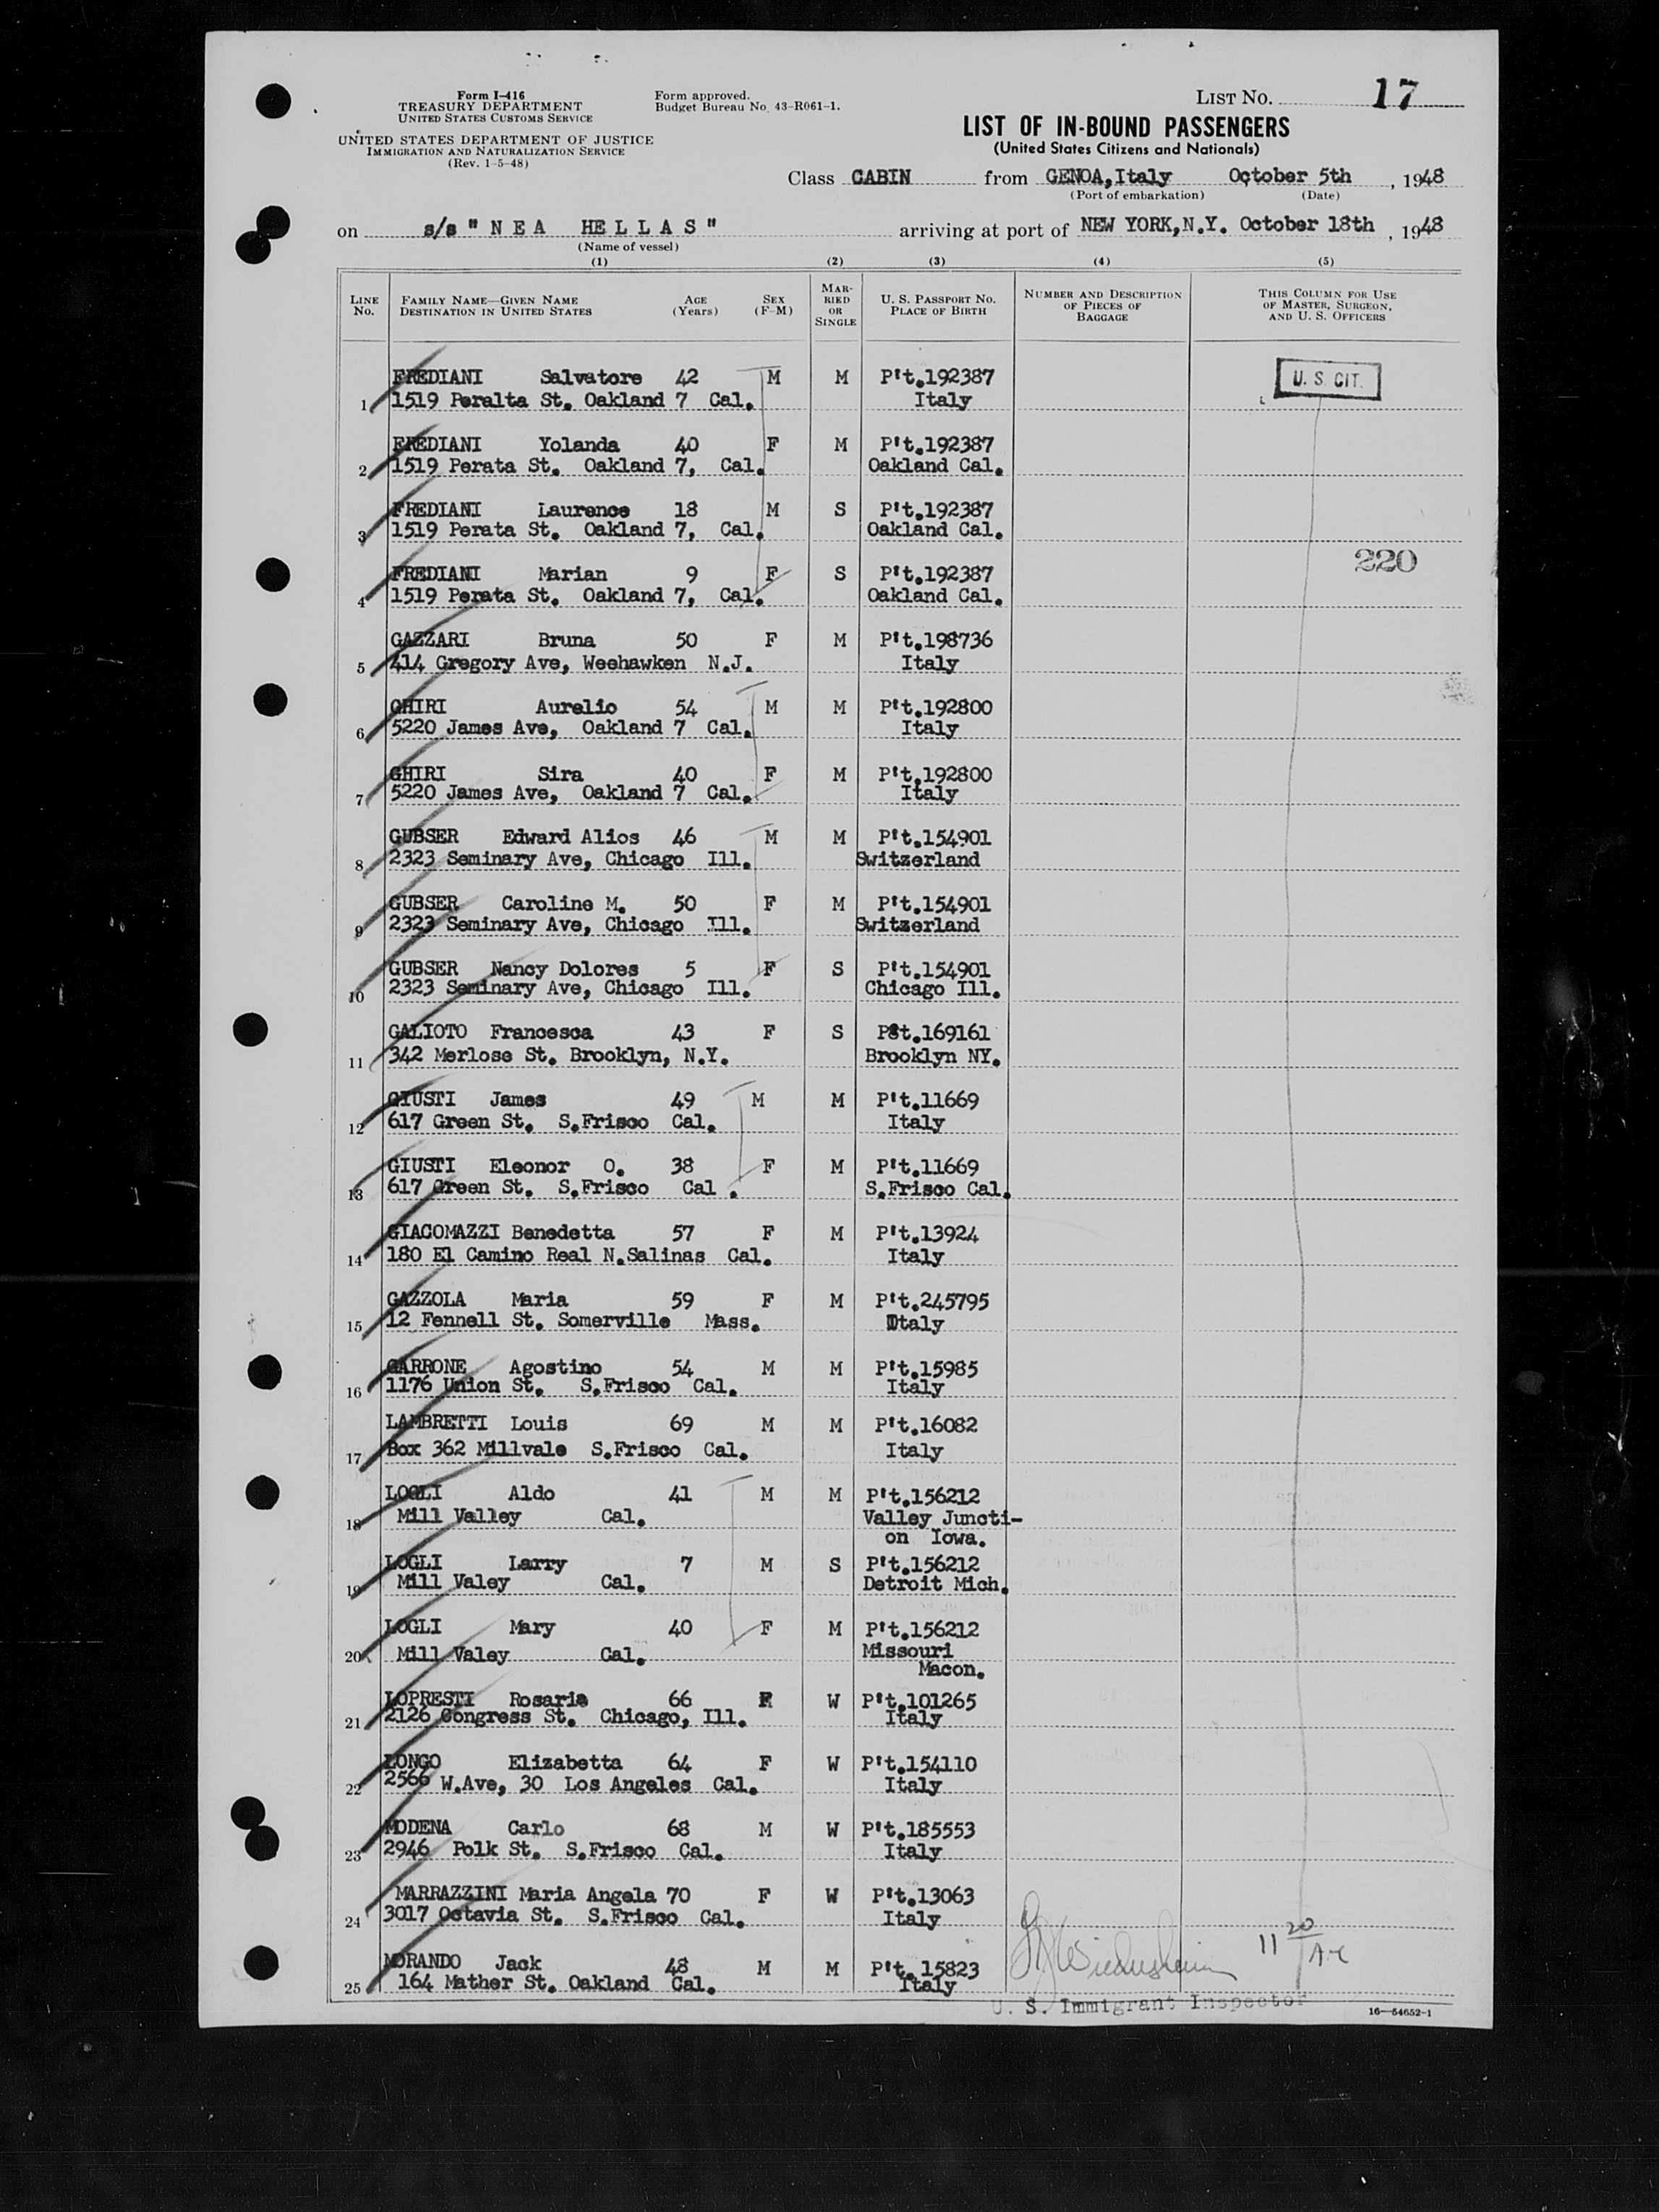 Form I-416
TREASURY DEPARTMENT
UNITED STATES CUSTOMS SERVICE
UNITED STATES DEPARTMENT OF JUSTICE
IMMIGRATION AND NATURALIZATION SERVICE
(Rev. 1-5-48)
Form approved.
Budget Bureau No. 43-R061-1.
LIST No. 17
LIST OF IN-BOUND PASSENGERS
(United States Citizens and Nationals)
Class CABIN from GENOA, Italy October 5th, 1948
(Port of embarkation) (Date)
on s/s "NEA HELLAS" arriving at port of NEW YORK, N.Y. October 18th, 1948
(Name of vessel)
(1) (2) (3) (4) (5)
LINE No. FAMILY NAME—GIVEN NAME DESTINATION IN UNITED STATES AGE (Years) SEX (F-M) MARRIED OR SINGLE U. S. PASSPORT No. PLACE OF BIRTH NUMBER AND DESCRIPTION OF PIECES OF BAGGAGE THIS COLUMN FOR USE OF MASTER, SURGEON, AND U. S. OFFICERS
FREDIANI Salvatore 42 M M P't.192387 U. S. CIT.
1 1519 Peralta St. Oakland 7 Cal. Italy
FREDIANI Yolanda 40 F M P't.192387
2 1519 Perata St. Oakland 7, Cal. Oakland Cal.
FREDIANI Laurence 18 M S P't.192387
3 1519 Perata St. Oakland 7, Cal. Oakland Cal.
220
FREDIANI Marian 9 F S P't.192387
4 1519 Perata St. Oakland 7, Cal. Oakland Cal.
GAZZARI Bruna 50 F M P't.198736
5 414 Gregory Ave, Weehawken N.J. Italy
GHIRI Aurelio 54 M M P't.192800
6 5220 James Ave, Oakland 7 Cal. Italy
GHIRI Sira 40 F M P't.192800
7 5220 James Ave, Oakland 7 Cal. Italy
GUBSER Edward Alios 46 M M P't.154901
8 2323 Seminary Ave, Chicago Ill. Switzerland
GUBSER Caroline M. 50 F M P't.154901
9 2323 Seminary Ave, Chicago Ill. Switzerland
GUBSER Nancy Dolores 5 F S P't.154901
10 2323 Seminary Ave, Chicago Ill. Chicago Ill.
GALIOTO Francesca 43 F S P't.169161
11 342 Merlose St. Brooklyn, N.Y. Brooklyn NY.
GIUSTI James 49 M M P't.11669
12 617 Green St. S.Frisco Cal. Italy
GIUSTI Eleonor O. 38 F M P't.11669
13 617 Green St. S.Frisco Cal. S.Frisco Cal.
GIACOMAZZI Benedetta 57 F M P't.13924
14 180 El Camino Real N.Salinas Cal. Italy
GAZZOLA Maria 59 F M P't.245795
15 12 Fennell St. Somerville Mass. Italy
GARRONE Agostino 54 M M P't.15985
16 1176 Union St. S.Frisco Cal. Italy
LAMBRETTI Louis 69 M M P't.16082
17 Box 362 Millvale S.Frisco Cal. Italy
LOGLI Aldo 41 M M P't.156212
18 Mill Valley Cal. Valley Juncti-
on Iowa.
LOGLI Larry 7 M S P't.156212
19 Mill Valey Cal. Detroit Mich.
LOGLI Mary 40 F M P't.156212
20 Mill Valey Cal. Missouri
Macon.
LOPRESTI Rosaria 66 F W P't.101265
21 2126 Congress St. Chicago, Ill. Italy
LONGO Elizabetta 64 F W P't.154110
22 2566 W.Ave, 30 Los Angeles Cal. Italy
MODENA Carlo 68 M W P't.185553
23 2946 Polk St. S.Frisco Cal. Italy
MARRAZZINI Maria Angela 70 F W P't.13063
24 3017 Octavia St. S.Frisco Cal. Italy
MORANDO Jack 48 M M P't.15823
25 164 Mather St. Oakland Cal. Italy
11 20
U. S. Immigrant Inspector
16—54652-1